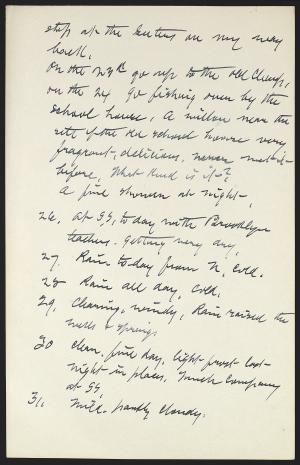 stop at the on my way
back.
On the 23rd go up to the old Champ,
on the 24 go fishing over by the
school house, A million near the
site of the old school house very
fragrant, delicious, never met it
before, What kind is it?
A fine shower at night,
26, at SS, to day with Brooklyn
teachers. Getting very dry,
27. Rain to-day from N, Cold.
28 Rain all day, Cold.
29, Clearing, windy, Rain raised the
wells & springs
30 Clear, fine day, light frost last
night in places. Much Company
at SS
31. Mild, partly cloudy.